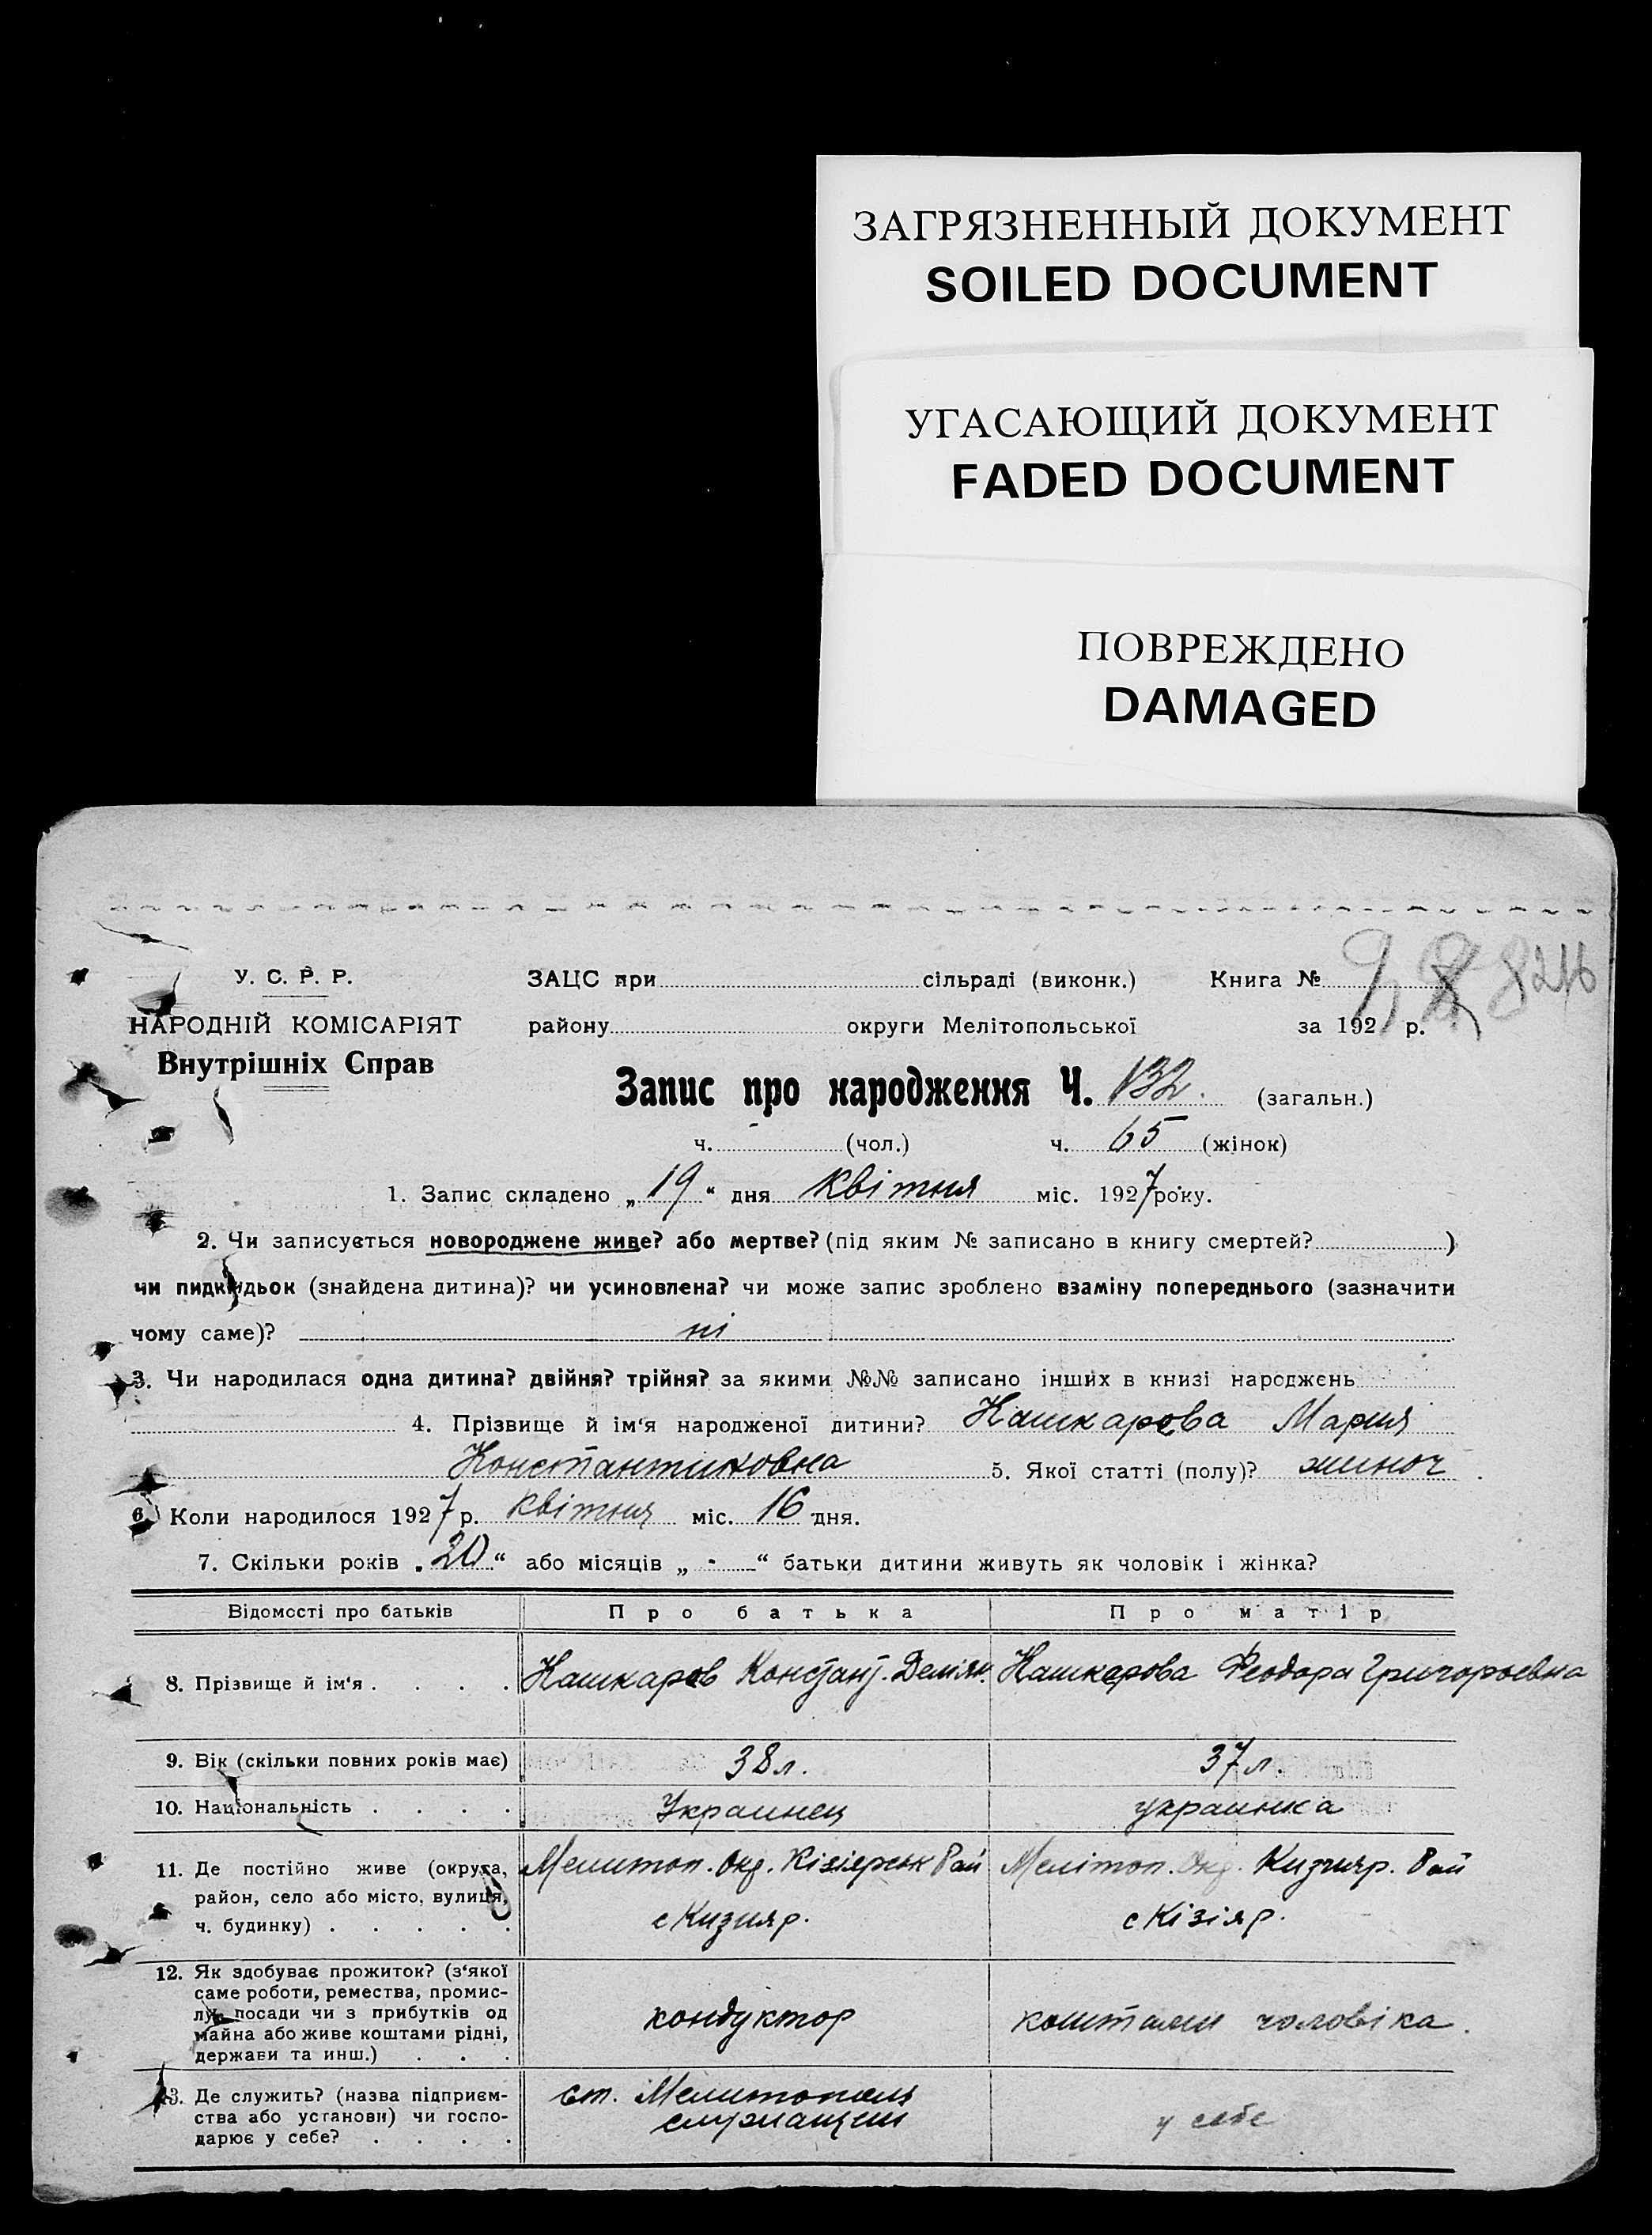 ЗАГРЯЗНЕННЫЙ ДОКУМЕНТ
SOILED DOCUMENT
УГАСАЮЩИЙ ДОКУМЕНТ
FADED DOCUMENT
ПОВРЕЖДЕНО
DAMAGED
У. С. Р. Р.
НАРОДНІЙ КОМІСАРІЯТ
Внутрішніх Справ
ЗАЦС при сільраді (виконк.) Книга №
району округи Мелітопольської за 192 р.
Запис про народження Ч. 132. (загальн.)
ч. - (чол.) ч. 65 (жінок)
1. Запис складено „19“ дня квітня міс. 1927 року.
2. Чи записується новороджене живе? або мертве? (під яким № записано в книгу смертей? )
чи пидкидьок (знайдена дитина)? чи усиновлена? чи може запис зроблено взаміну попереднього (зазначити
чому саме)? ні
3. Чи народилася одна дитина? двійня? трійня? за якими №№ записано інших в книзі народжень
4. Прізвище й ім‘я народженої дитини? Кашкарова Мария
Константиновна 5. Якої статті (полу)? жиноч
6. Коли народилося 1927 р. квітня міс. 16 дня.
7. Скільки років „20“ або місяців „-“ батьки дитини живуть як чоловік і жінка?
Відомості про батьків Про батька Про матір
8. Прізвище й ім‘я . . . . Кашкаров Констант. Демян. Кашкарова Феодора Григорьевна
9. Вік (скільки повних років має) 38 л. 37 л.
10. Національність . . . . Украинец украинка
11. Де постійно живе (округа, район, село або місто, вулиця, ч. будинку) . . . . . Мелитоп. Окр. Кізіярськ Рай Мелітоп. Окр. Кизияр. Рай
с Кизияр. с Кізіяр.
12. Як здобуває прожиток? (з‘якої саме роботи, ремества, промислу, посади чи з прибутків од майна або живе коштами рідні, держави та инш.) . . . кондуктор коштами чоловіка.
13. Де служить? (назва підприємства або установи) чи господарює у себе? . . . . ст. Мелитополь у себе
служащим